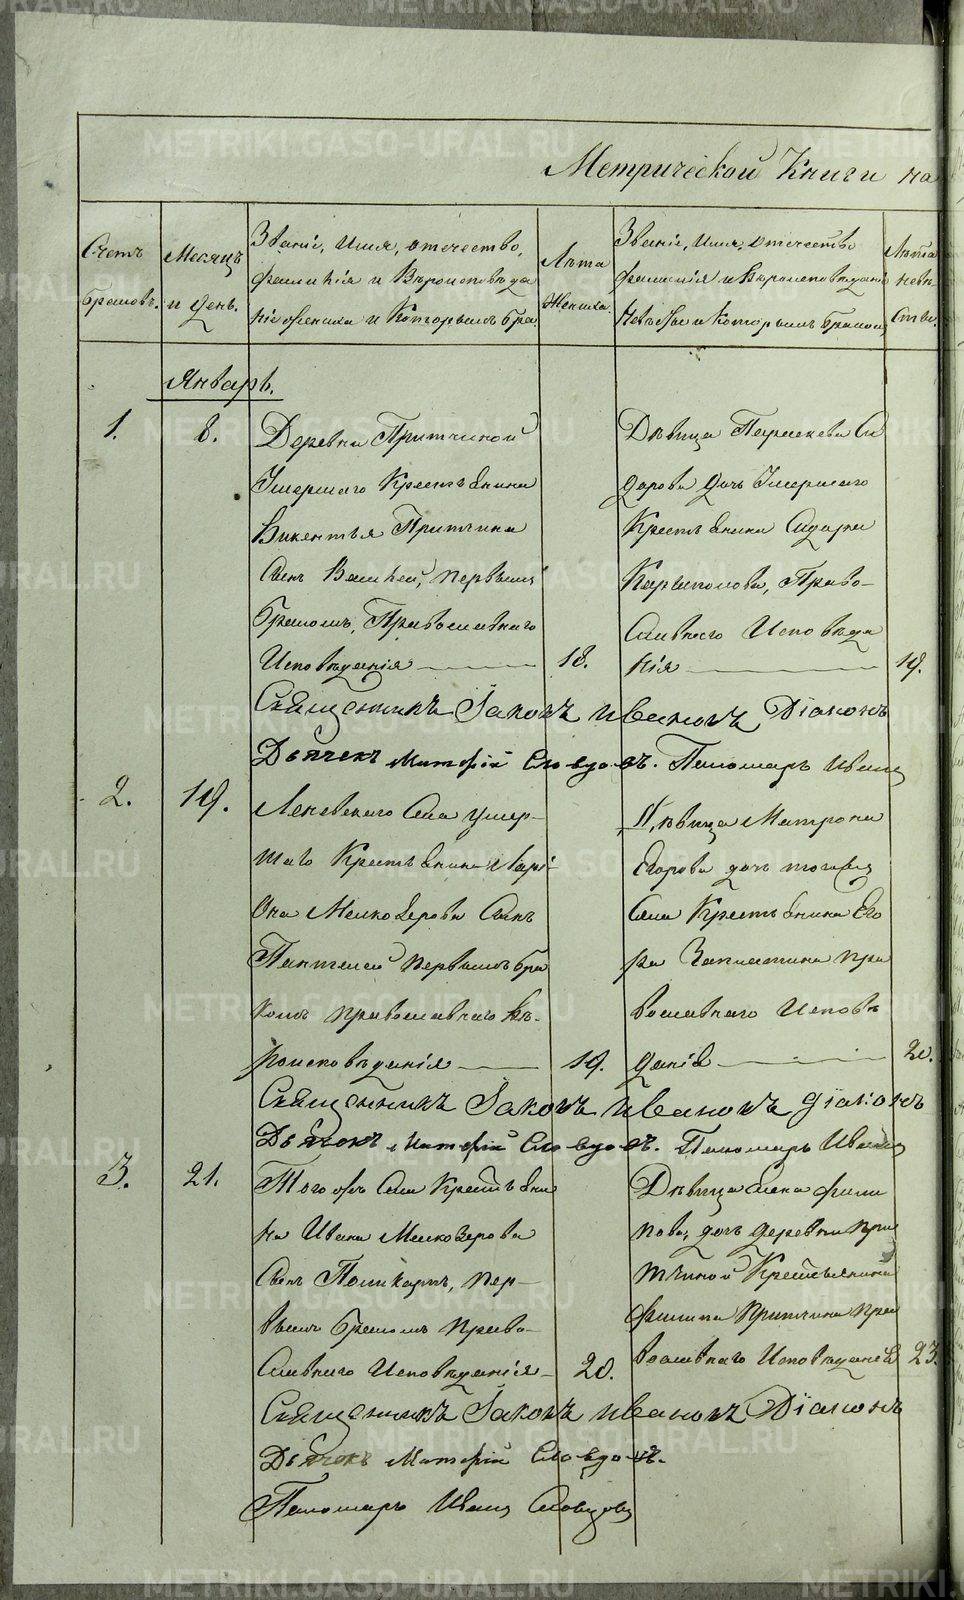 Метрической Книги на
Счетъ
браковъ.
Месяцъ
и день.
Званіе, Имя, отечество,
фамилія и Вѣроисповѣда
ніе жениха и Которымъ бра.
Лѣта
Жениха.
Званіе, Имя, отечество
фамилія и Вѣроисповѣдані
Невѣсты и Которымъ бракомъ
Лѣта
невѣ
сты.
Январь.
1.
8.
Деревни Притчиной
Умершаго Крестьянина
Викентья Притчина
Сынъ Василей, первымъ
бракомъ, Православнаго
Исповѣданія
18.
Дѣвица Параскева Си
дорова дочь Умершаго
Крестьянина Сидора
Карполова, Право-
славнаго Исповѣда
нія
19.
Священникъ Іаковъ Ивановъ Діаконъ
Дьячекъ Матфій Словцовъ. Пономарь Иванъ
2.
19.
Леневскаго Села умер-
шаго Крестьянина Ларі-
она Мелкозерова Сынъ
Пантелей первымъ бра
комъ православнаго вѣ-
роисповѣданія
19.
Дѣвица Матрона
Егорова дочь тогожъ
Села Крестьянина Его
ра Заплатина пра
вославнаго Исповѣ
данія
20.
Священникъ Іаковъ Ивановъ діаконъ
Дьячекъ Матфій Словцовъ. Пономарь Иванъ
3.
21.
Того жъ Села Крестьяни
на Ивана Мелкозерова
Сынъ Поликарпъ, пер-
вымъ бракомъ право-
славнаго Исповѣданія
20.
Дѣвица Елена Фили
пова, дочь деревни при
тчиной Крестьянина
Филипа Притчина пра
вославнаго Исповѣданія
23.
Священникъ Іаковъ Ивановъ Діаконъ
Дьячекъ Матфій Словцовъ.
Пономарь Иванъ Словцовъ
METRIKI.GASO-URAL.RU